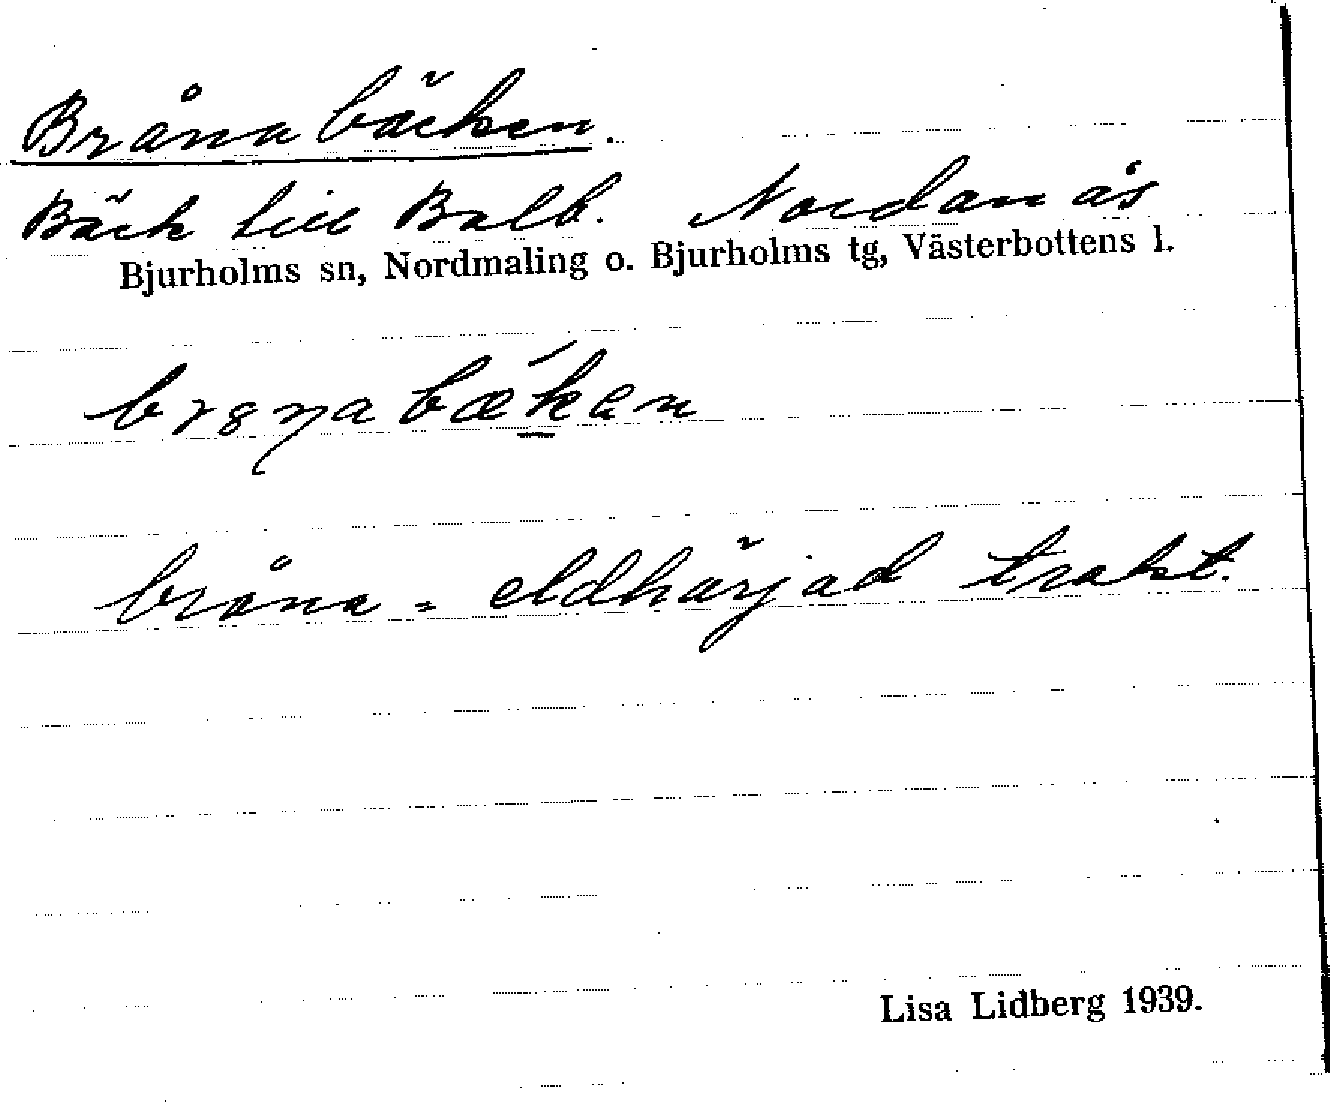 Bråna bäcken.
Bäck till Balb. Nordanås
Bjurholms sn, Nordmaling o. Bjurholms tg, Västerbottens l.
bråna = eldhärjad trakt.
Lisa Lidberg 1939.